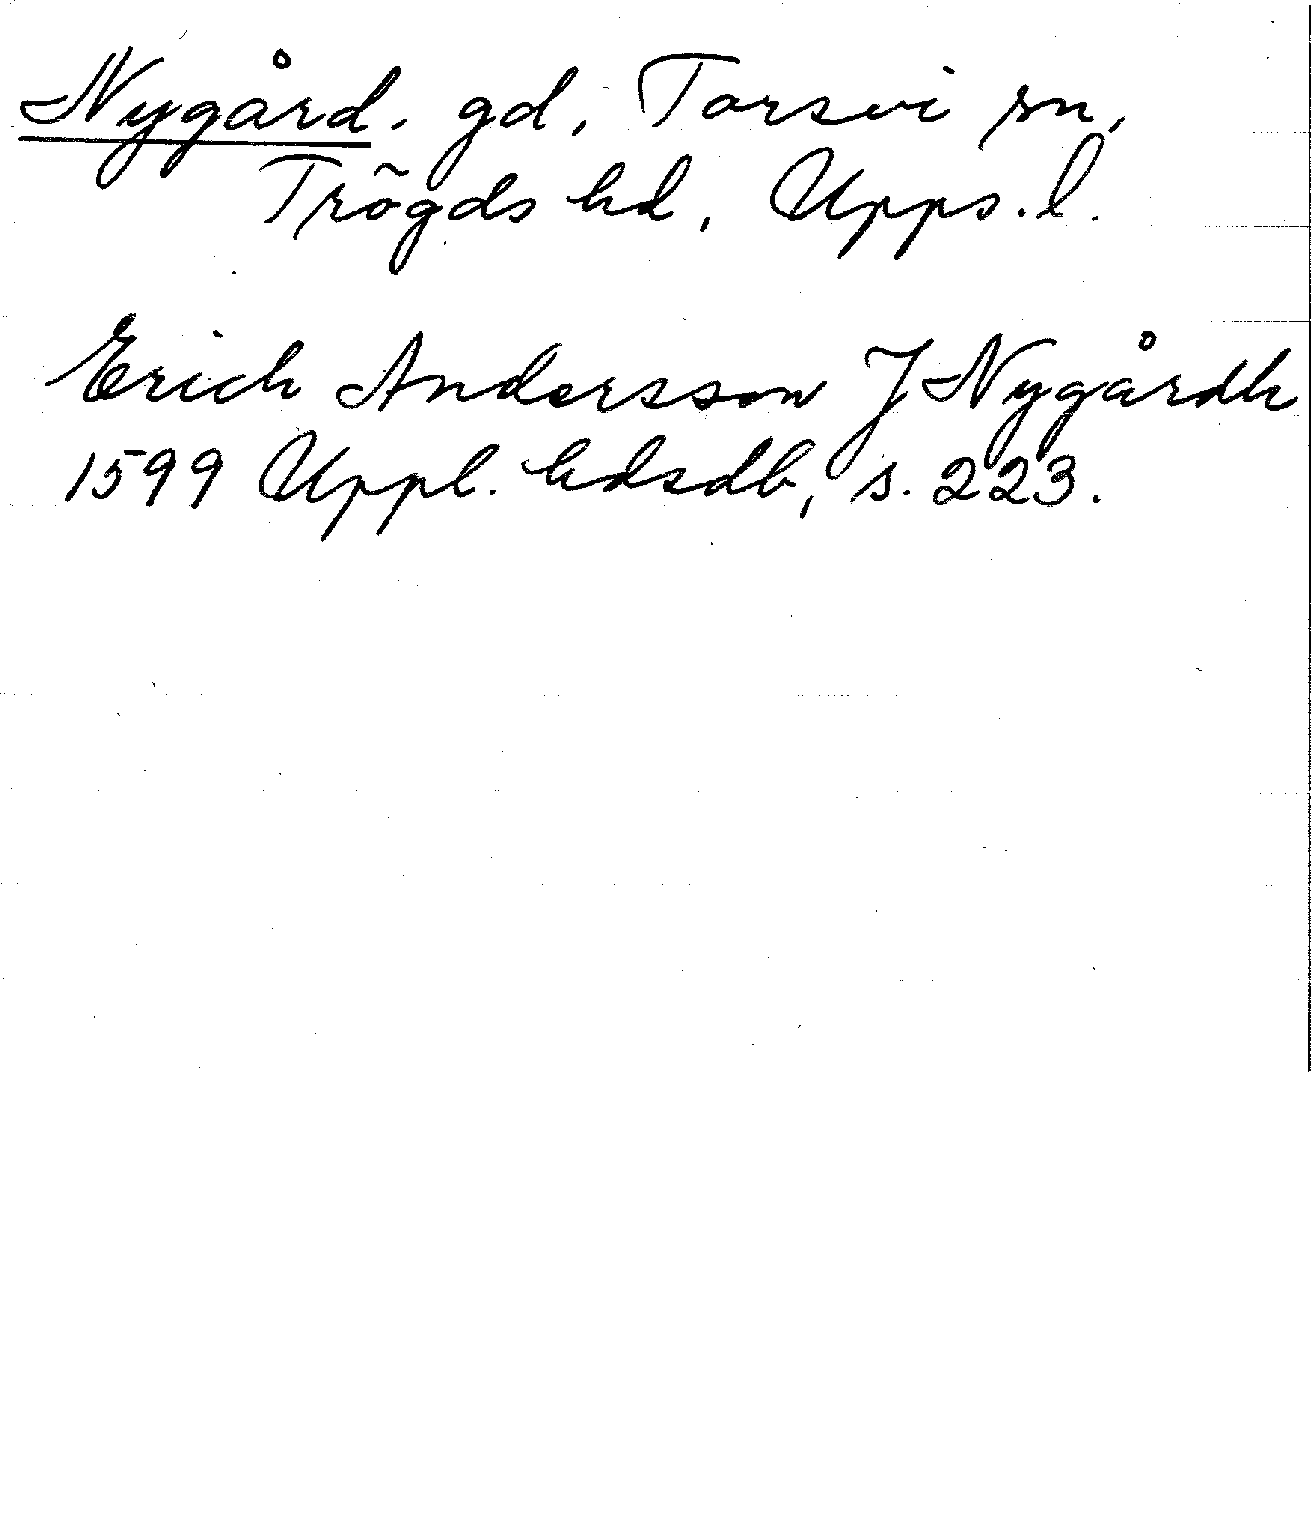 Nygård. gd, Torsvi sn,
Trögds hd, Upps. l.
Erich Andersson J Nygårdh
1599 Uppl. hdsdb, s. 223.